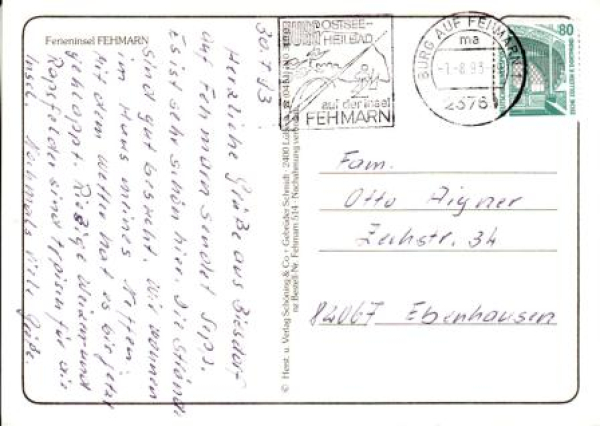 Ferieninsel FEHMARN
30.7.93
Herzliche Grüße aus Bisdorf
auf Fehmarn sendet
Es ist sehr schön hier. Die Strände
sind gut besucht. Wir wohnen
im Haus meines Neffen.
Mit dem Wetter hat es bis jetzt
geklappt. Riesige Weizen und
Rapsfelder sind typisch für die
Insel. Nochmals viele Grüße.
© Herst. u. Verlag Schöning & Co + Gebrüder Schmidt · 2400 Lübeck
Bestell-Nr. Fehmarn 514 · Nachahmung verboten
OSTSEE-
HEILBAD
auf der Insel
FEHMARN
BURG AUF FEHMARN 1
ma
-1.-8.93-
2376
80
Fam.
Otto Aigner
Zechstr. 34
84067 Ebenhausen